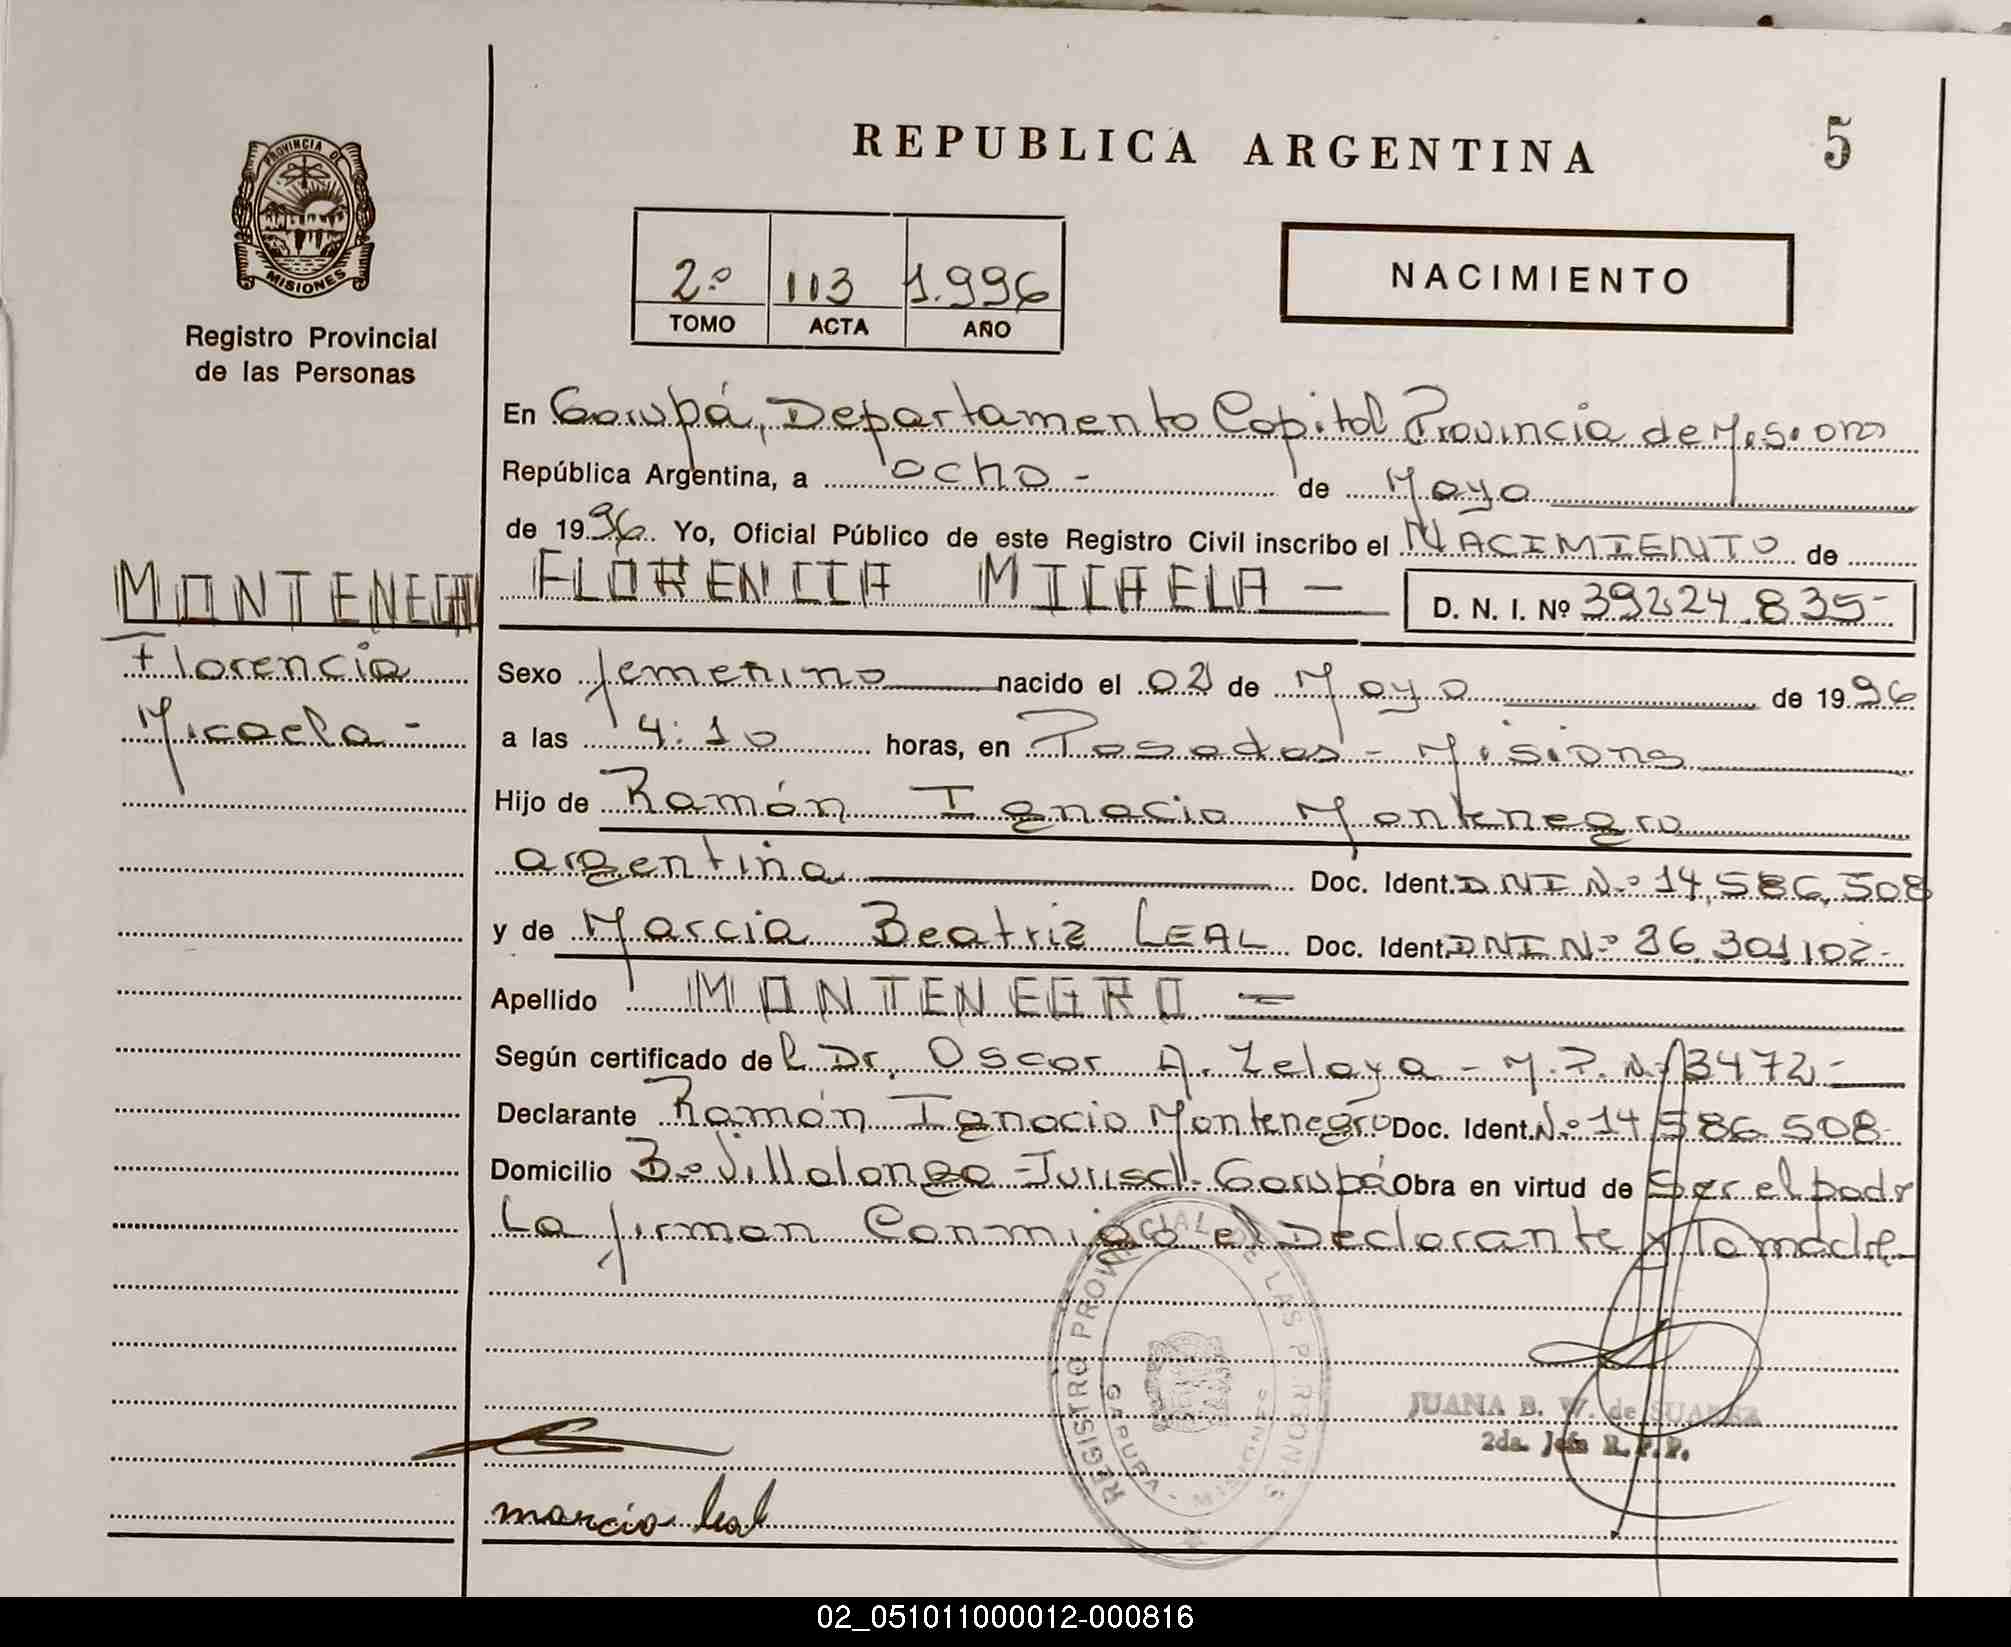 REPUBLICA ARGENTINA
5
PROVINCIA DE
MISIONES
Registro Provincial
de las Personas
2º 113 1.996
TOMO ACTA AÑO
NACIMIENTO
En Garupá, Departamento Capital Provincia de Misiones
República Argentina, a ocho - de Mayo
de 1996. Yo, Oficial Público de este Registro Civil inscribo el NACIMIENTO de
MONTENEGRO
FLORENCIA MICAELA -
D. N. I. Nº 39224.835-
Florencia
Micaela -
Sexo femenino nacido el 02 de Mayo de 1996
a las 4:10 horas, en Posadas - Misiones
Hijo de Ramón Ignacio Montenegro
argentina Doc. Ident. DNI Nº 14.586.508
y de Marcia Beatriz LEAL Doc. Ident. DNI Nº 26.301.102-
Apellido MONTENEGRO =
Según certificado del Dr. Oscar A. Zelaya - M.P. Nº 3472 -
Declarante Ramón Ignacio Montenegro Doc. Ident. Nº 14.586.508
Domicilio Bº Villalonga - Jurisd. Garupá Obra en virtud de Ser el padre
La firman Conmigo el Declarante y la madre
REGISTRO PROVINCIAL DE LAS PERSONAS
GARUPA - MISIONES
JUANA B. W. de SUAREZ
2da. Jefa R.P.P.
marcia leal
02_051011000012-000816